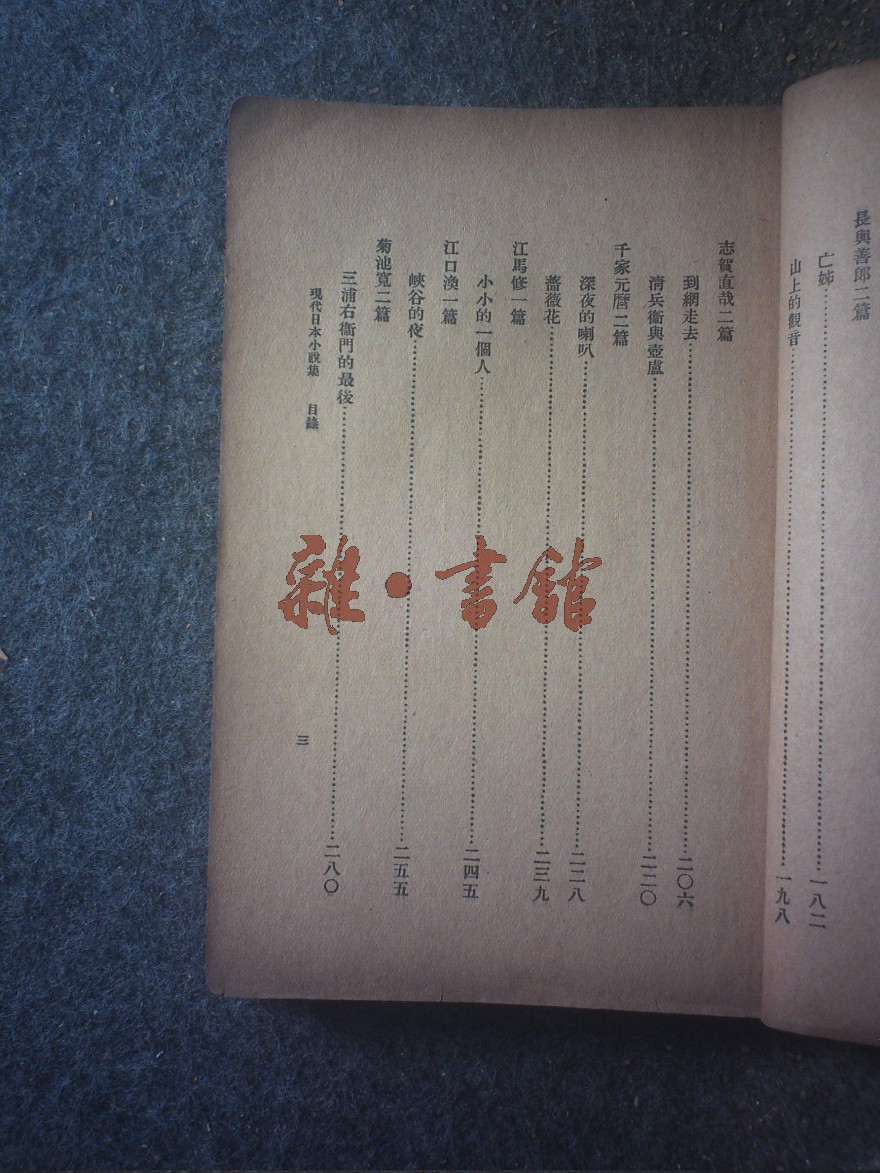 長與善郎二篇
亡姊……一八二
山上的觀音……一九八
志賀直哉二篇
到網走去……二〇六
清兵衞與壺盧……二二〇
千家元麿二篇
深夜的喇叭……二二八
薔薇花……二三九
江馬修一篇
小小的一個人……二四五
江口渙一篇
峽谷的夜……二五五
菊池寬二篇
三浦右衞門的最後……二八〇
現代日本小說集 目錄
三
雜·書館